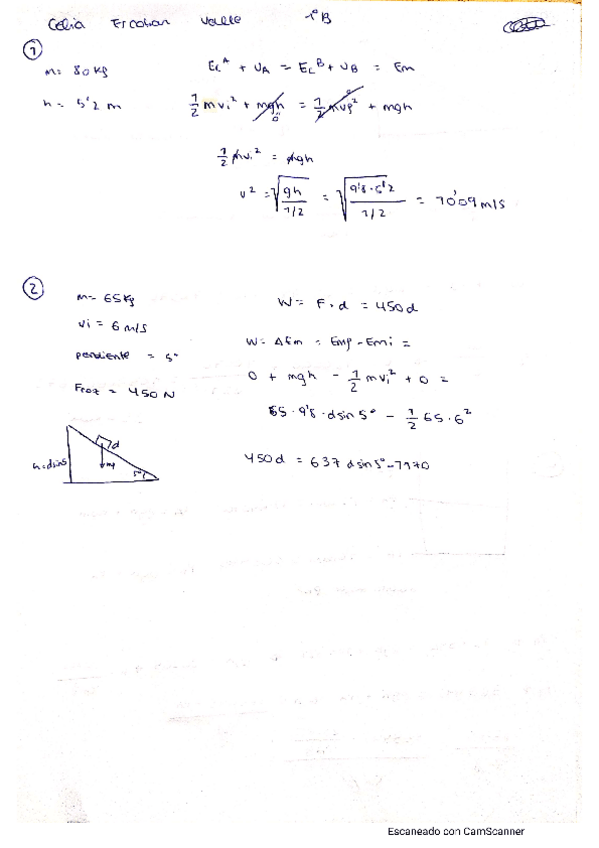 Celia Escobar Valle 1ºB
①
m = 80 kg
h = 5'2 m
Ec^A + U_A = Ec^B + U_B = Em
1/2 m vi² + mgh = 1/2 m vf² + mgh
0 0
1/2 m vi² = mgh
v² = √(gh / 1/2) = √(9'8 · 5'2 / 1/2) = 10'09 m/s
②
m = 65 kg
vi = 6 m/s
pendiente = 5°
Froz = 450 N
W = F · d = 450 d
W = ΔEm = Emf - Emi =
0 + mgh - 1/2 m vi² + 0 =
65 · 9'8 · d sin 5° - 1/2 65 · 6²
450 d = 637 d sin 5° - 1170
d
h = d sin 5
mg
5°
Escaneado con CamScanner